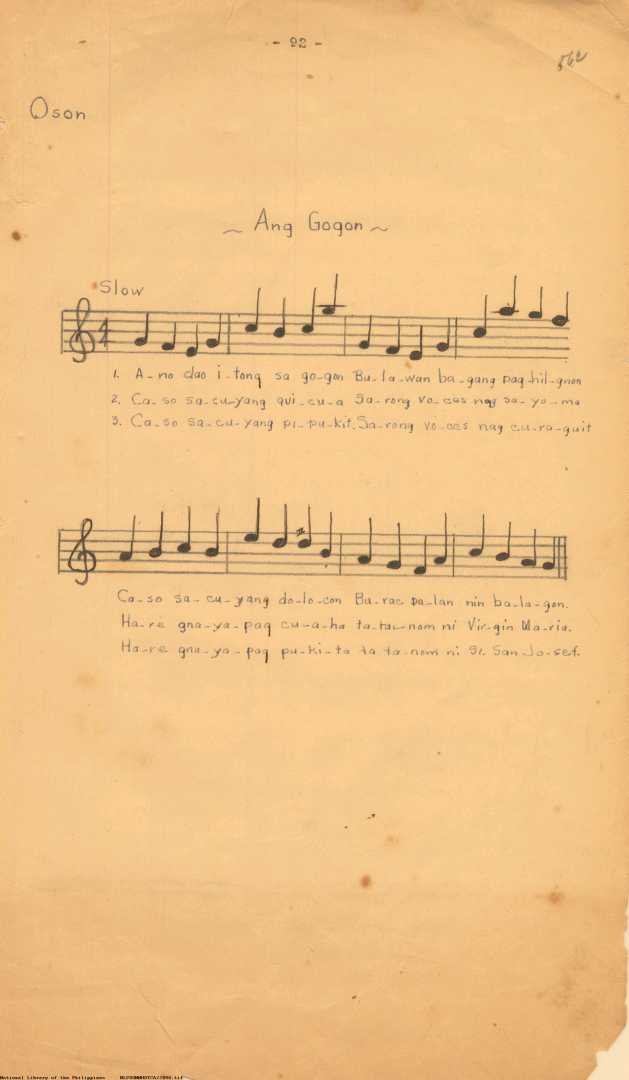 - 22 -
562
Oson
~ Ang Gogon ~
Slow
4
4
1. A-no dao i-tong sa go-gon Bu-la-wan ba-gang pag-hil-gnon
2. Ca-so sa-cu-yang qui-cu-a Sa-rong vo-ces nag sa-yo-ma
3. Ca-so sa-cu-yang pi-pu-kit, Sa-rong vo-ces nag cu-ra-guit
Ca-so sa-cu-yang do-lo-con Bu-rac pa-lan nin ba-la-gon.
Ha-re gna-ya-pag cu-a-ha ta-ta-nom ni Vir-gin Ma-ria.
Ha-re gna-ya-pag pu-ki-ta ta ta-nom ni Sr. San Jo-sef.
National Library of the Philippines